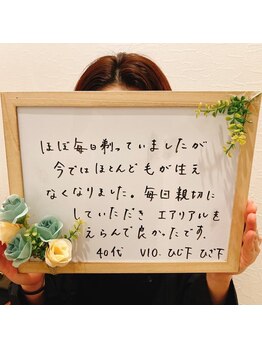 ほぼ毎日剃っていましたが
今ではほとんど毛が生え
なくなりました。毎回親切に
していただき エアリアルを
えらんで良かったです。
40代 VIO. ひじ下 ひざ下